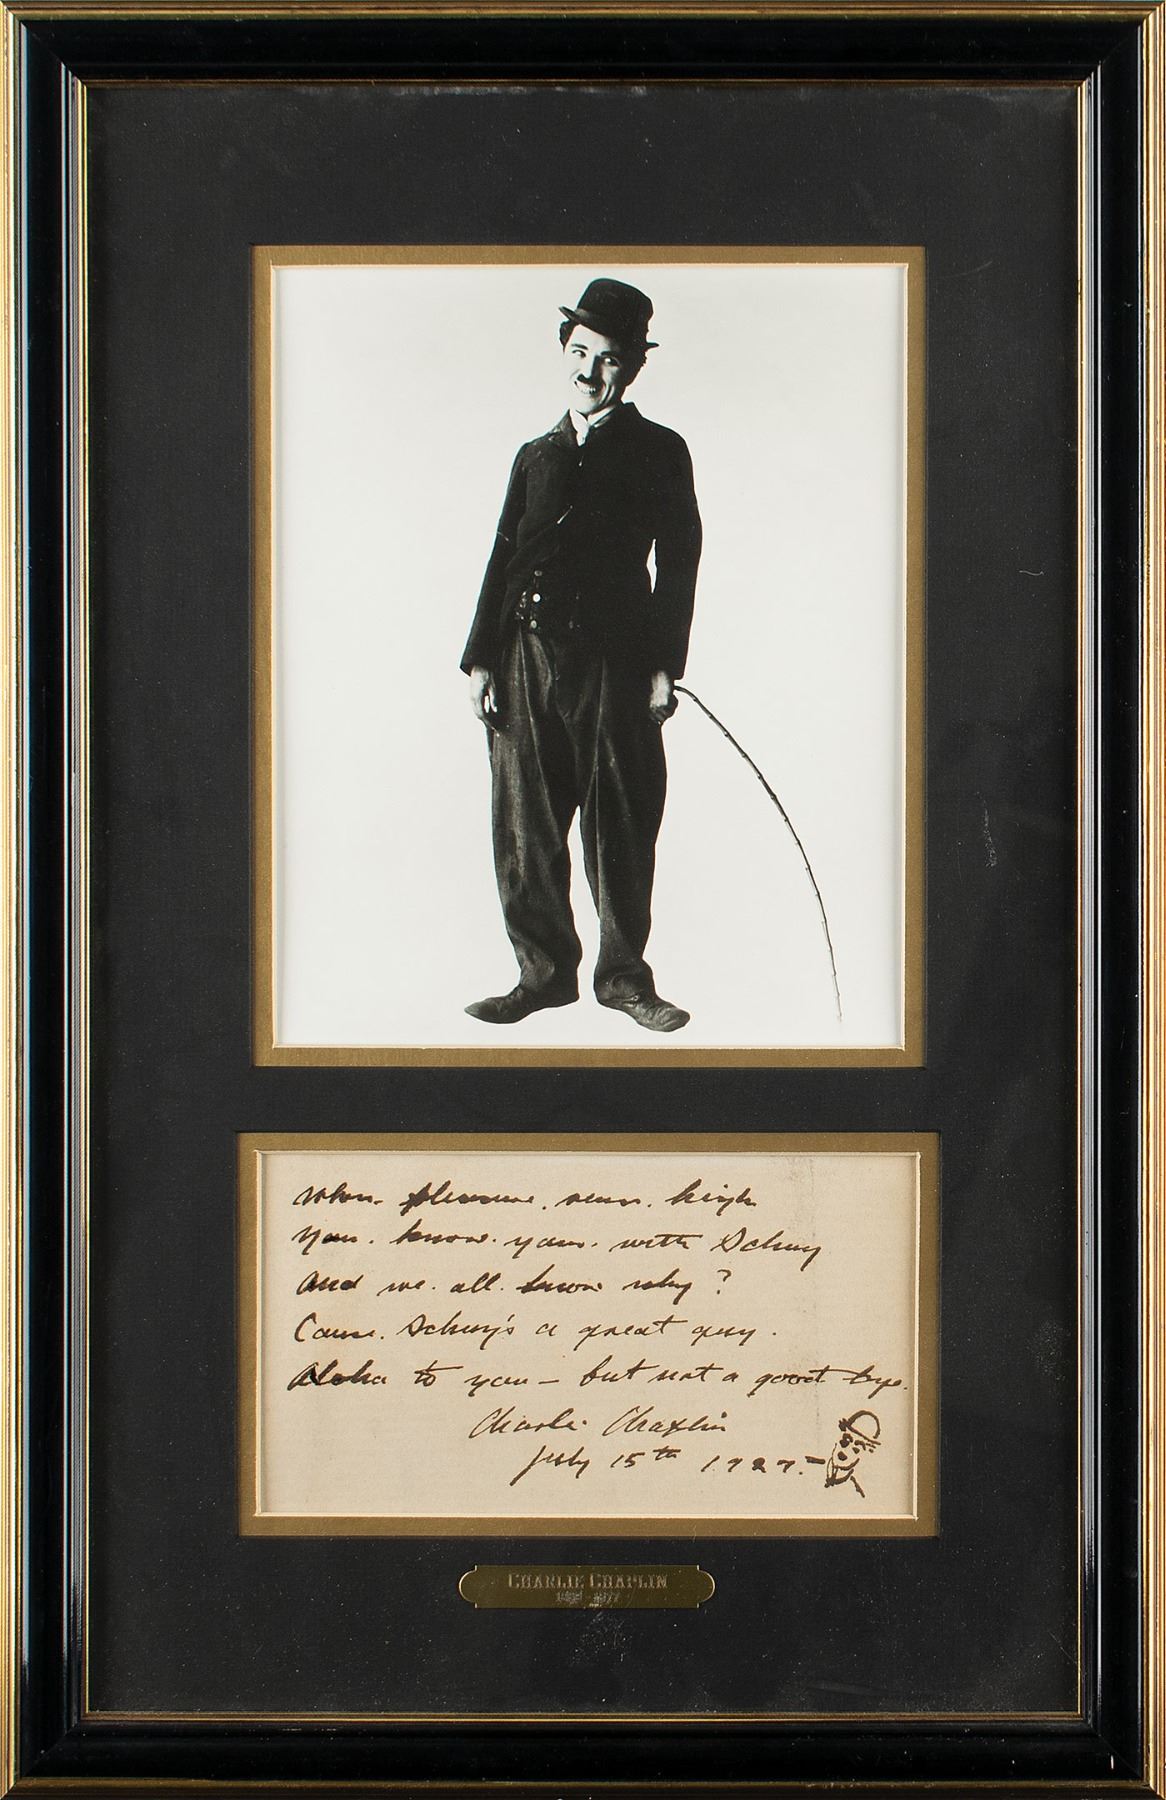 When pleasure runs high
You know your with Schuy
And we all know why?
Cause Schuy's a great guy.
Aloha to you — but not a good bye.
Charlie Chaplin
July 15th 1927.
CHARLIE CHAPLIN